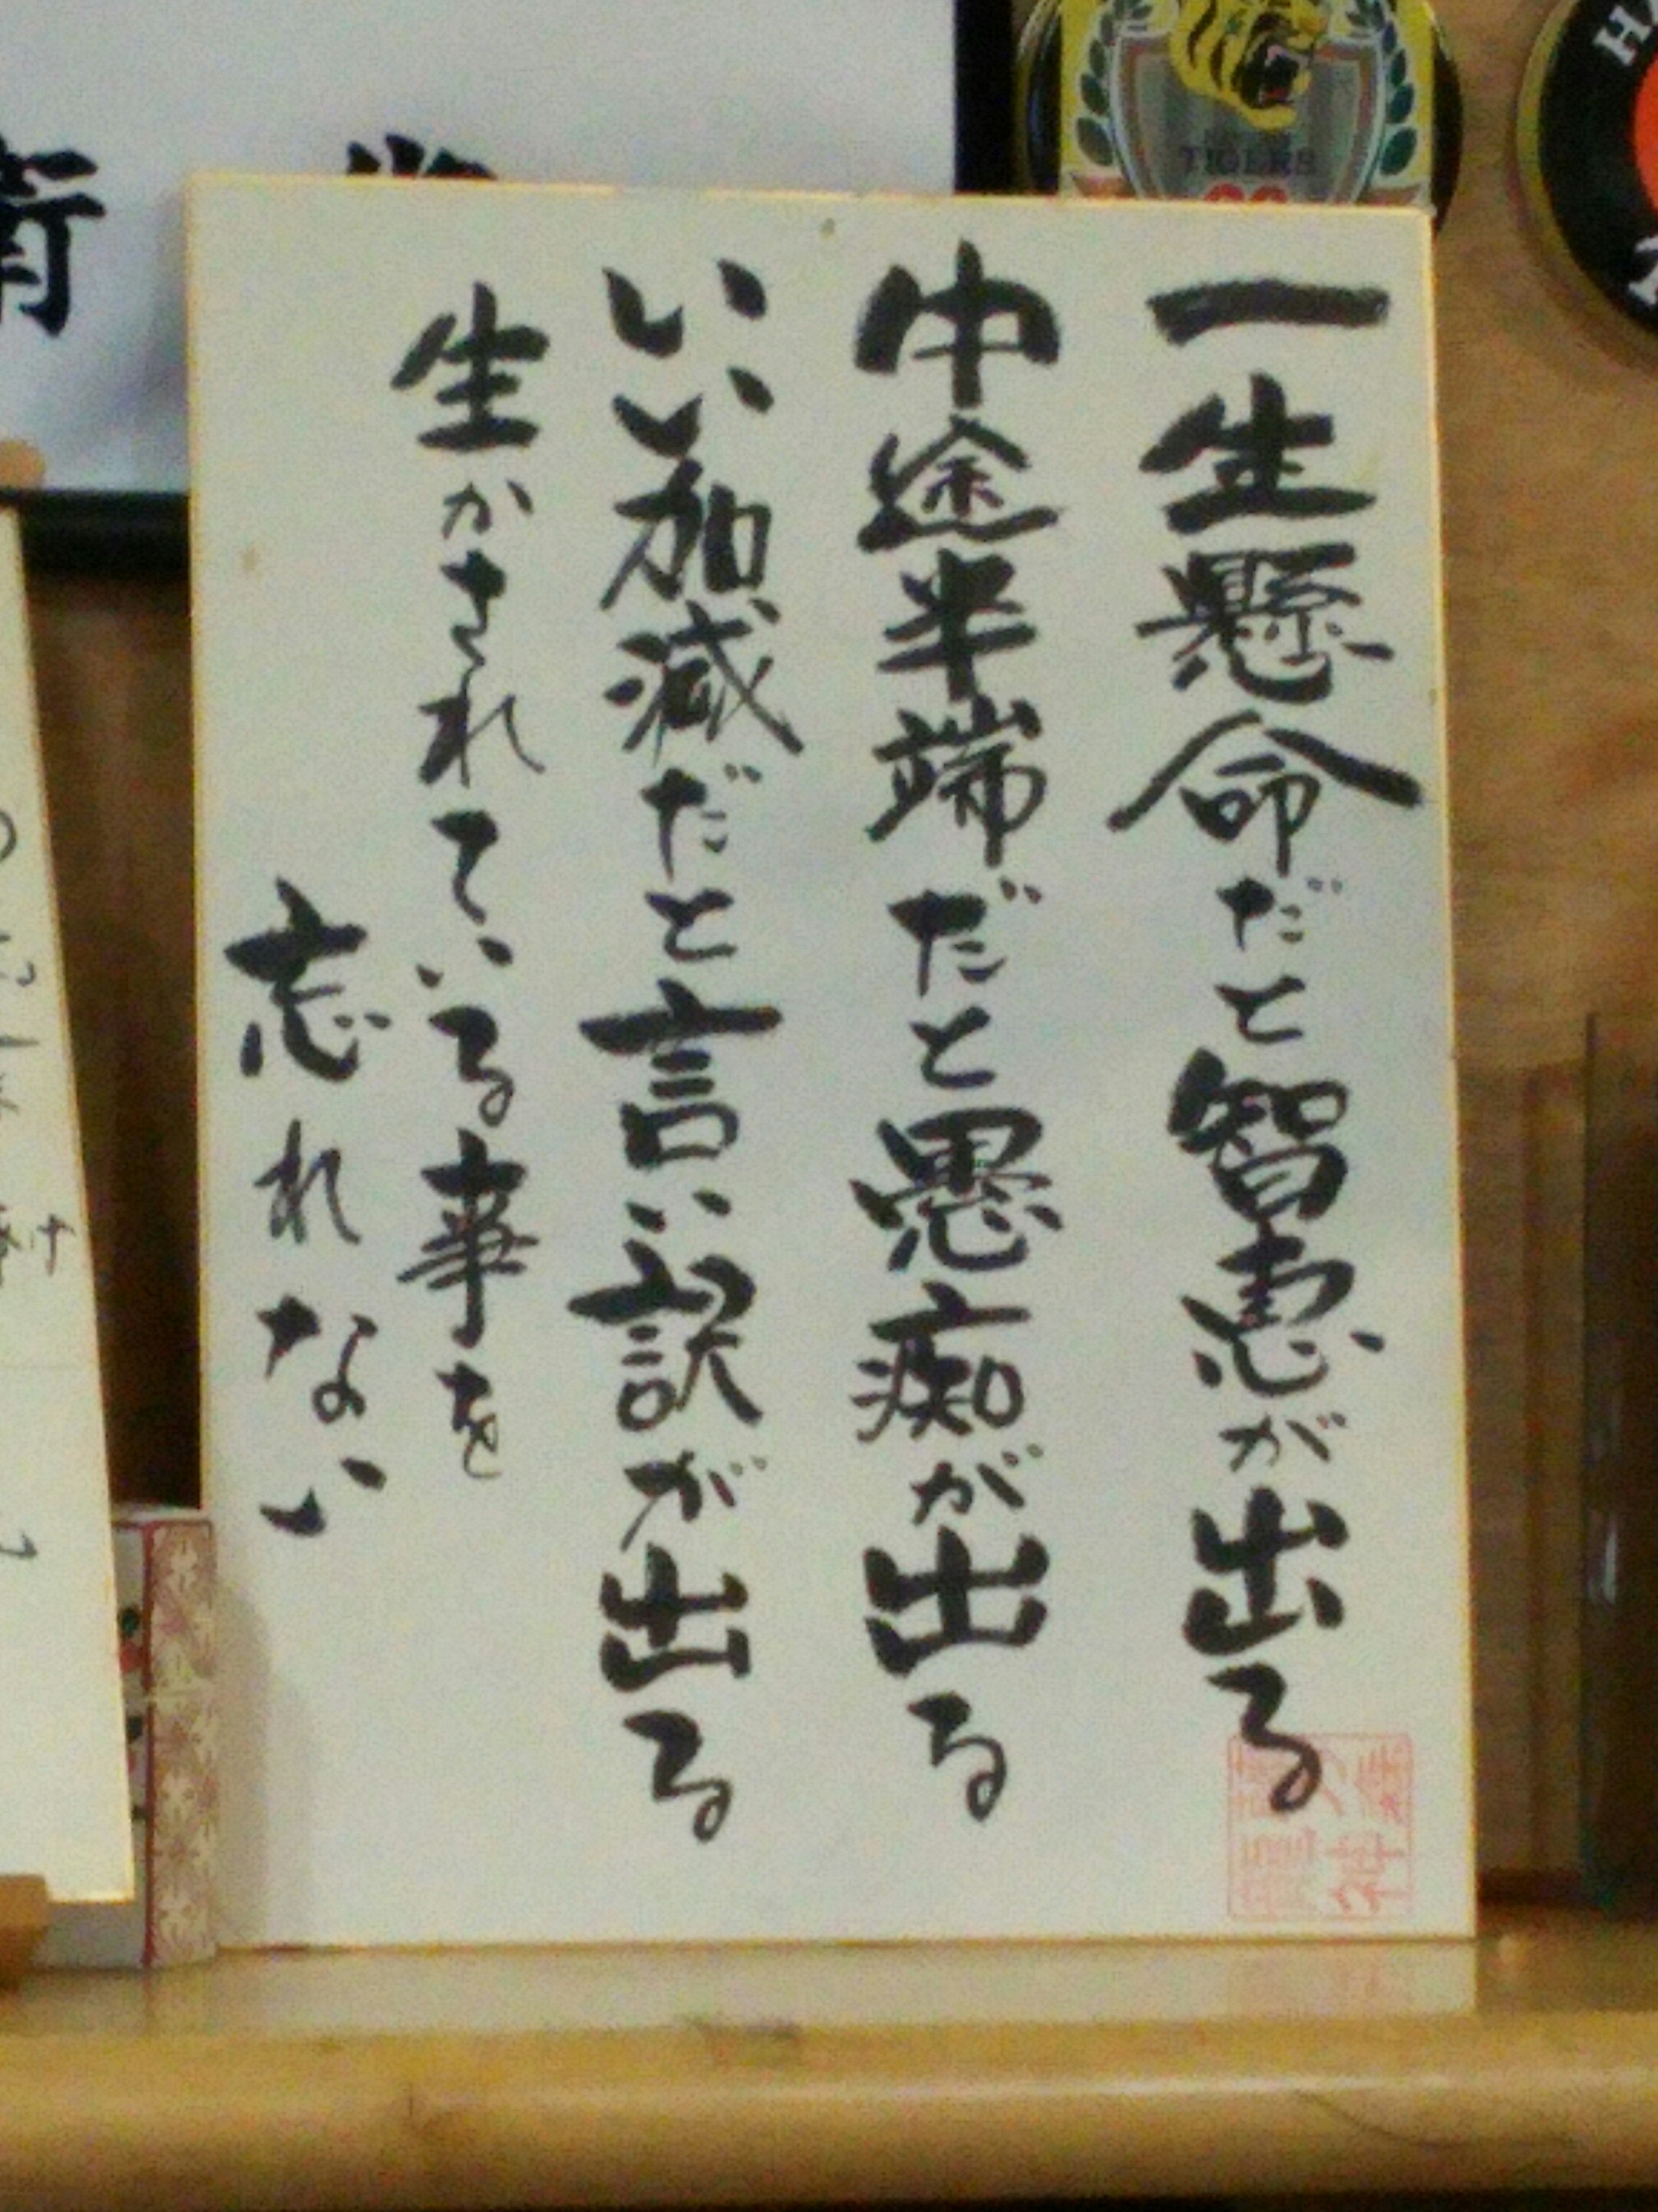 一生懸命だと智恵が出る
中途半端だと愚痴が出る
いい加減だと言い訳が出る
生かされている事を
忘れない
TIGERS